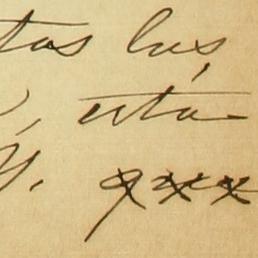 tas las
, esta-
y. qxxx